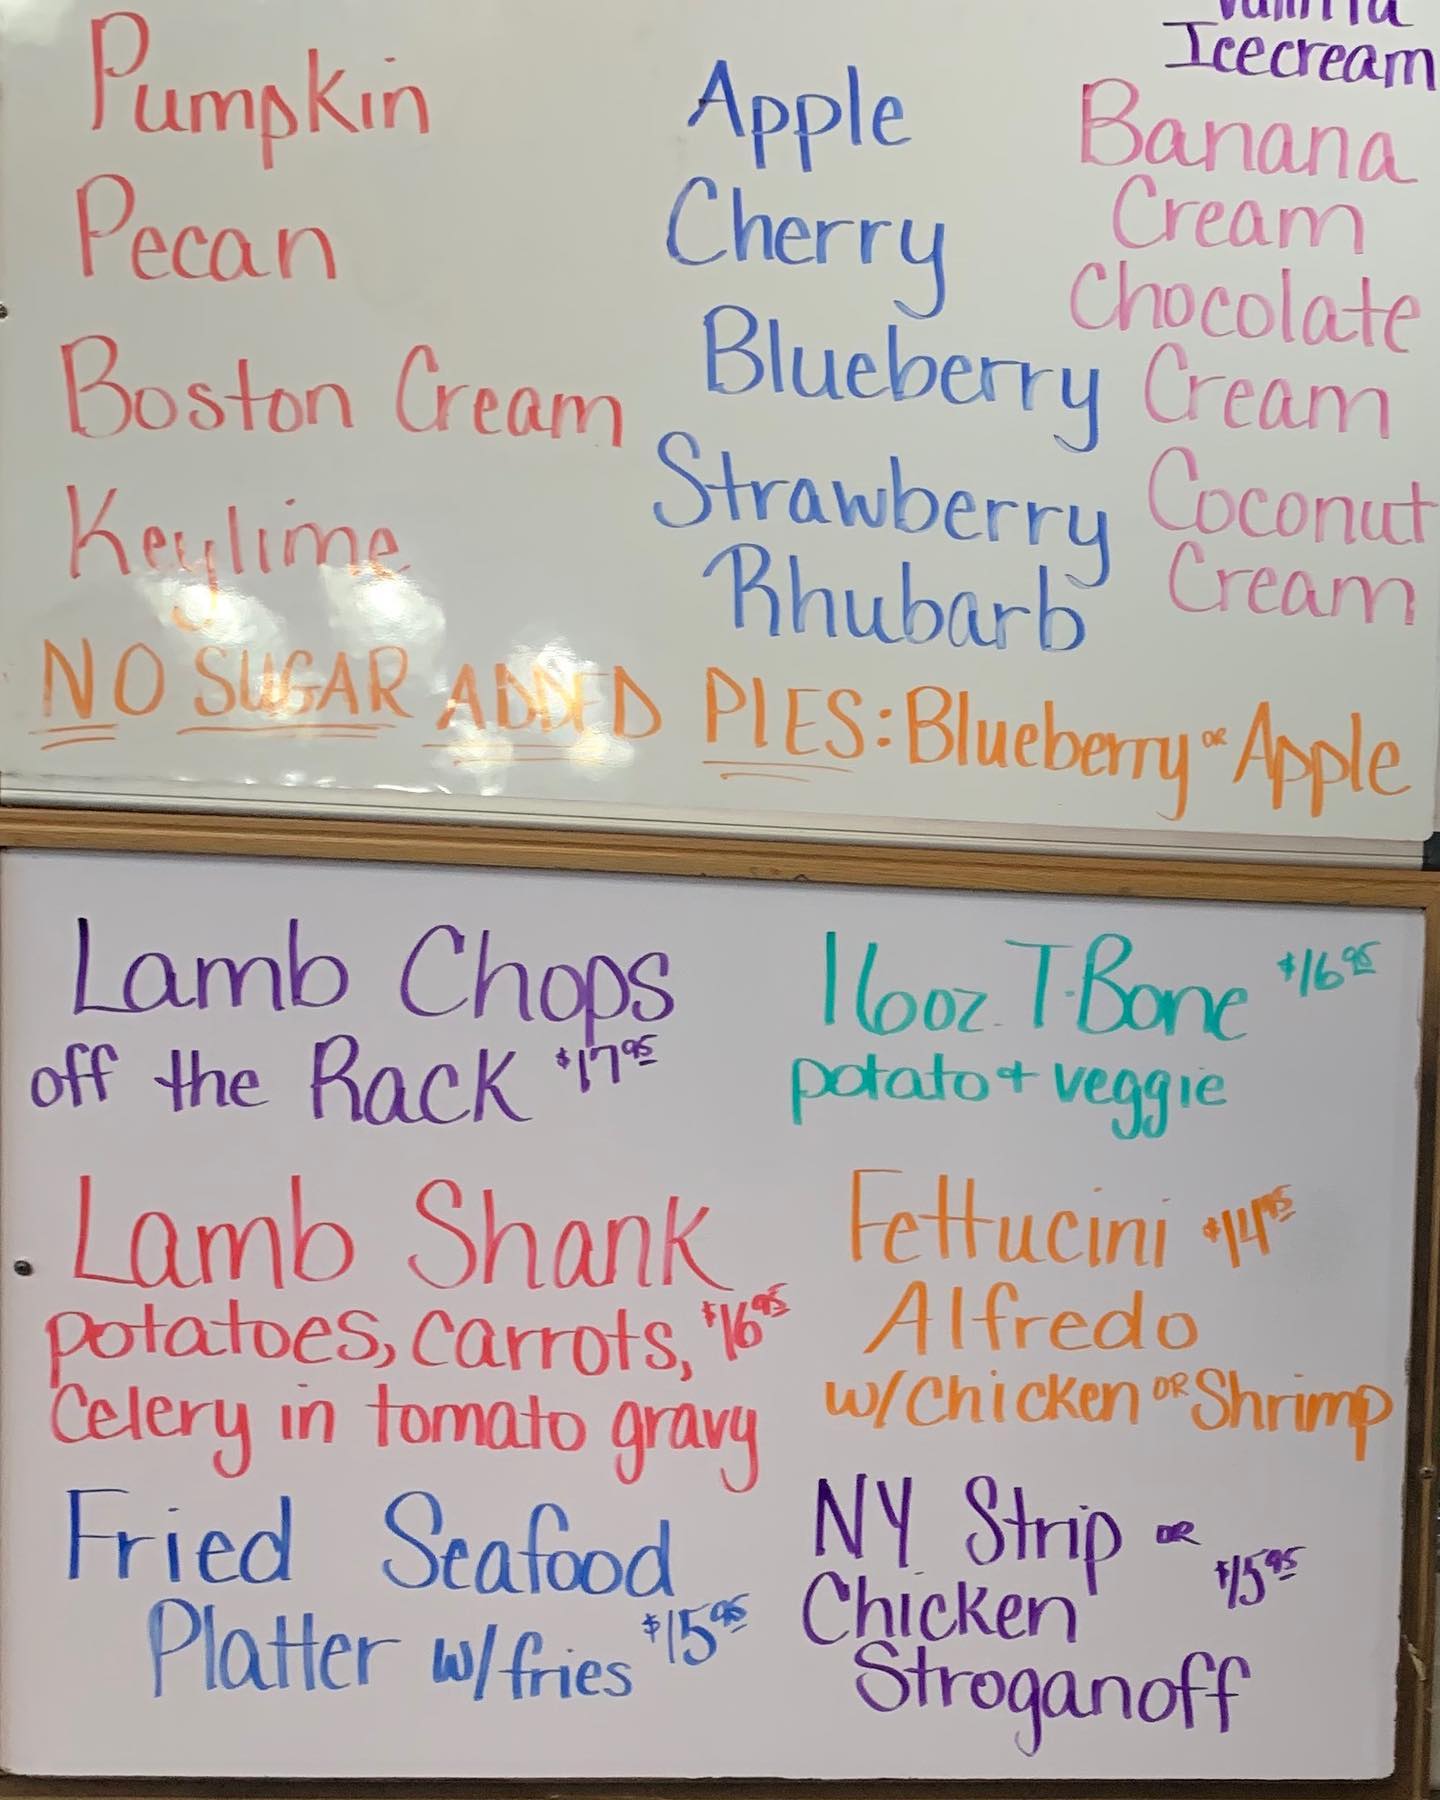 Vanilla
Icecream
Pumpkin
Pecan
Boston Cream
Keylime
Apple
Cherry
Blueberry
Strawberry
Rhubarb
Banana
Cream
Chocolate
Cream
Coconut
Cream
NO SUGAR ADDED PIES: Blueberry OR Apple
Lamb Chops
off the Rack $17.95
Lamb Shank
potatoes, carrots, $16.95
Celery in tomato gravy
Fried Seafood
Platter w/fries $15.95
16oz. T-Bone $16.95
potato + veggie
Fettucini $14.95
Alfredo
w/Chicken OR Shrimp
NY Strip OR
Chicken $15.95
Stroganoff